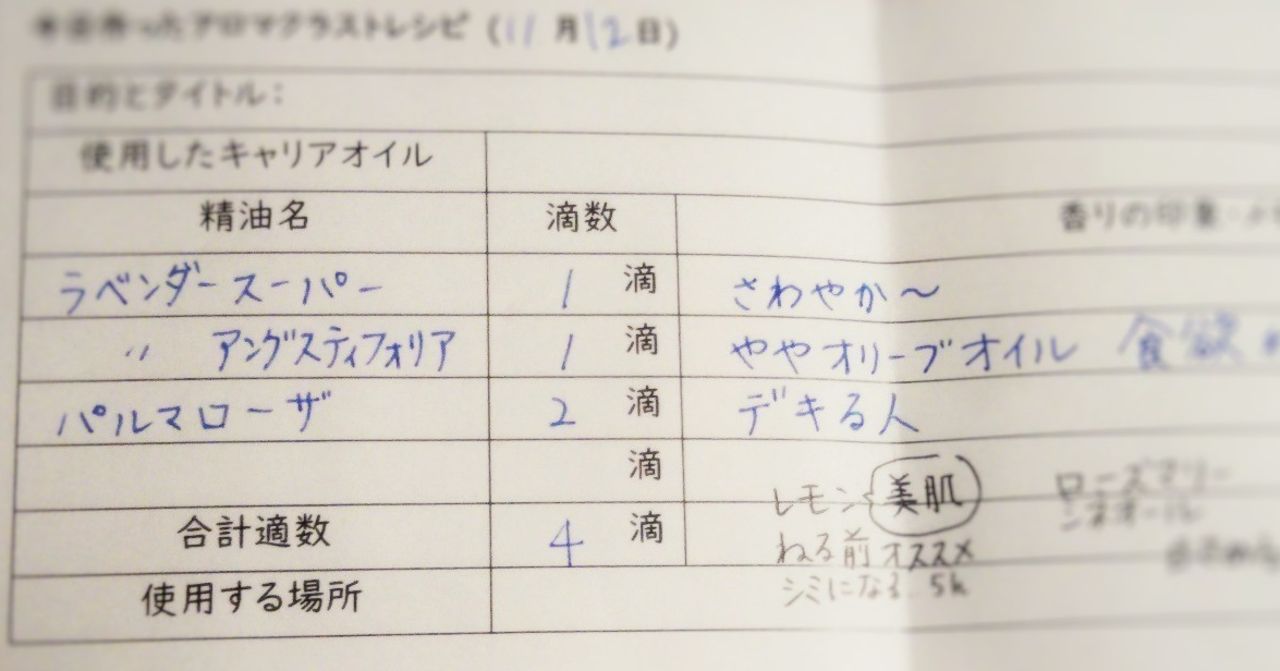 アロマクラフトレシピ (11月12日)
目的とタイトル：
使用したキャリアオイル
精油名 滴数 香りの印象・メ
ラベンダースーパー 1 滴 さわやか～
〃 アングスティフォリア 1 滴 ややオリーブオイル 食欲
パルマローザ 2 滴 デキる人
滴
レモン 美肌 ローズマリー
合計適数 4 滴 シネオール
ねる前オススメ
シミになる 5h
使用する場所